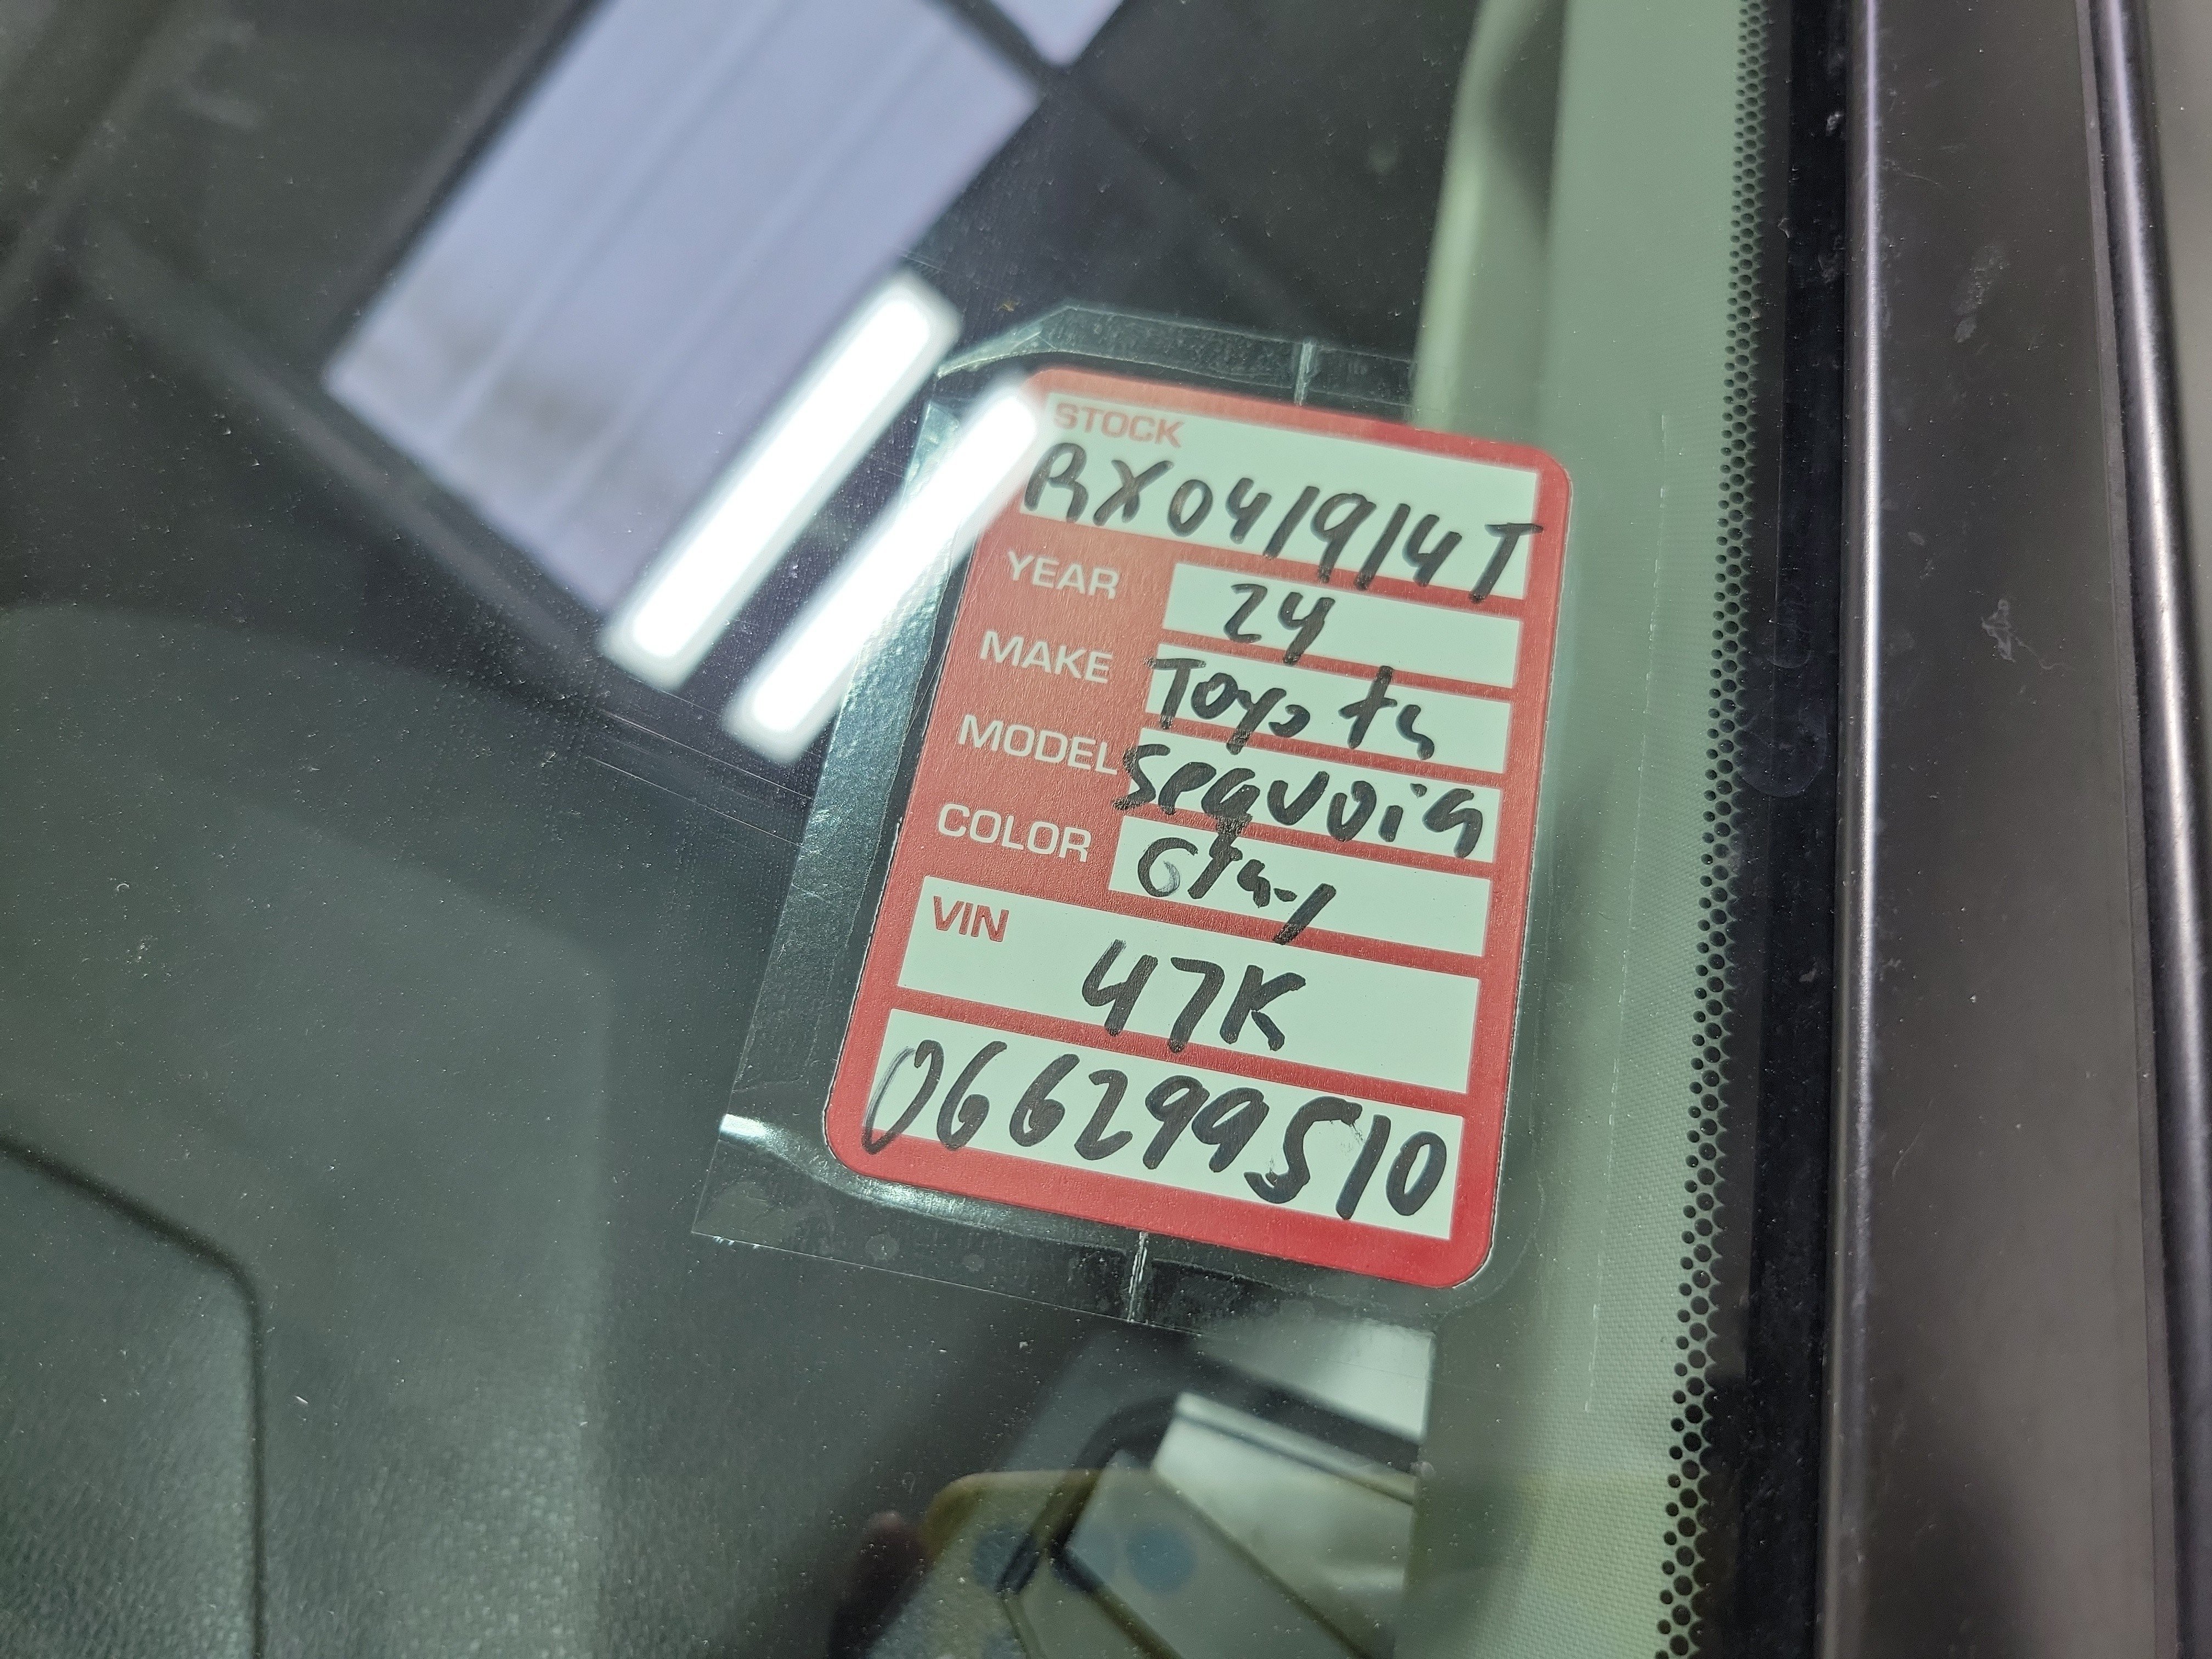 STOCK
RX041914T
YEAR 24
MAKE Toyota
MODEL Sequoia
COLOR Gray
VIN
47K
066299510